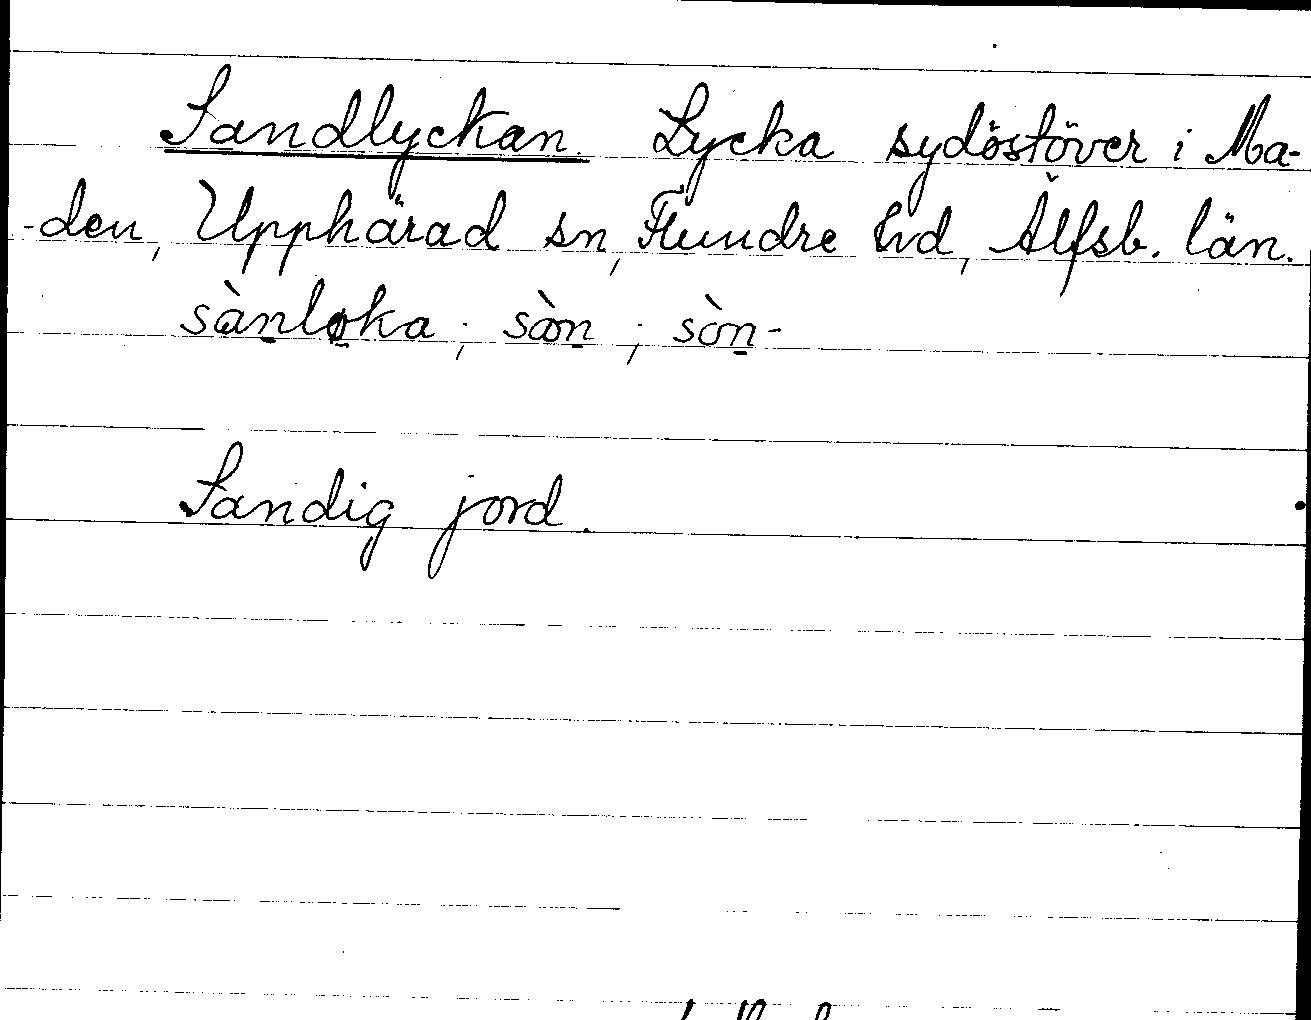 Sandlyckan. Lycka sydöstöver i Ma-
-den, Upphärad sn, Flundre hd, Älfsb. län.
sànlo̱ka ; sòn ; sòn-
Sandig jord.